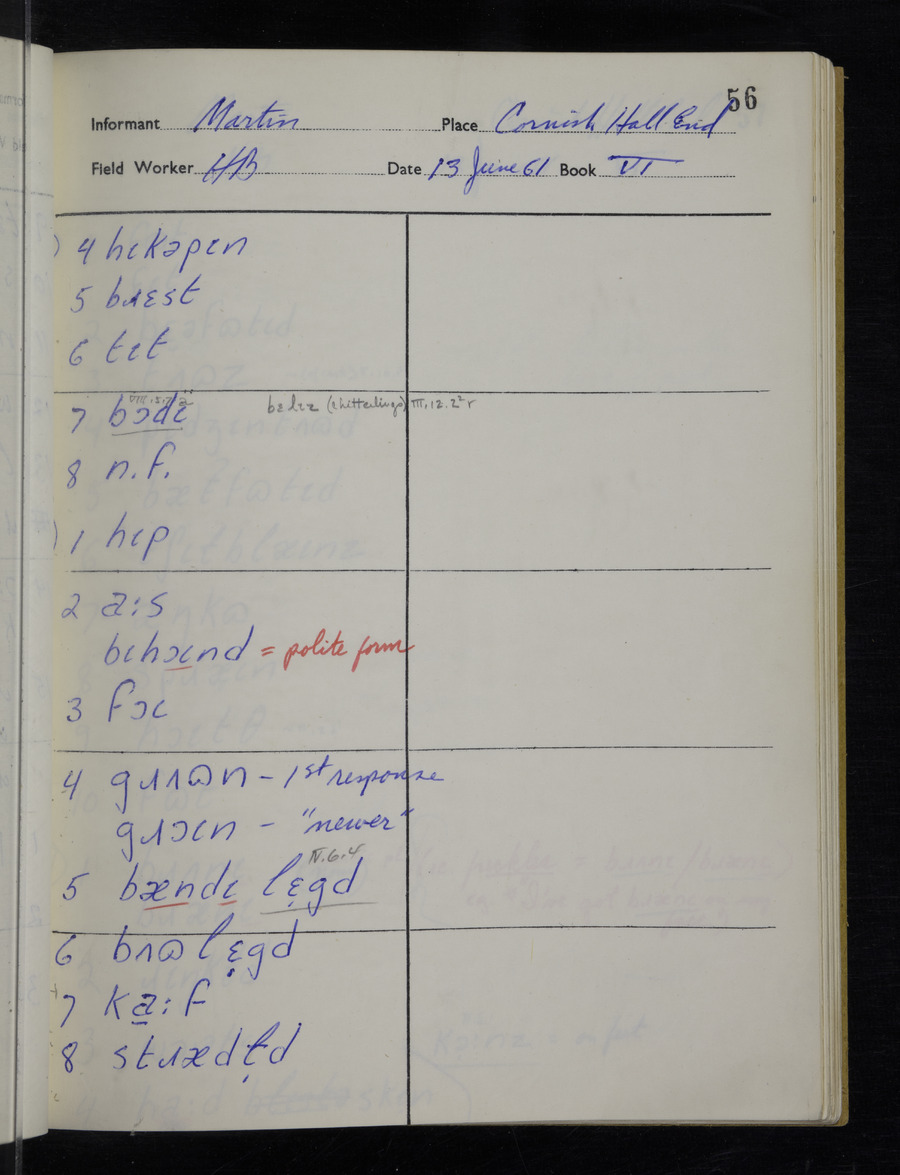 56
Informant Martin Place Cornish Hall End
Field Worker HB Date 13 June 61 Book VI
) 4 hɩkəpɩn
5 bɹɛst
6 tɩt
7 bɔdɩ
bɛlɩz (chitterlings) III.12.2² r
8 n.f.
) 1 hɩp
2 a̠:s
bɩhɔɩnd = polite form
3 fɔɩ
4 gɹʌɷn – 1st response
gɹɔɩn – "newer"
IV.6.4
5 bændɩ lɛ̣gd
6 bʌɷlɛ̣gd
7 ka̠:f
8 stɹædɫ̣d